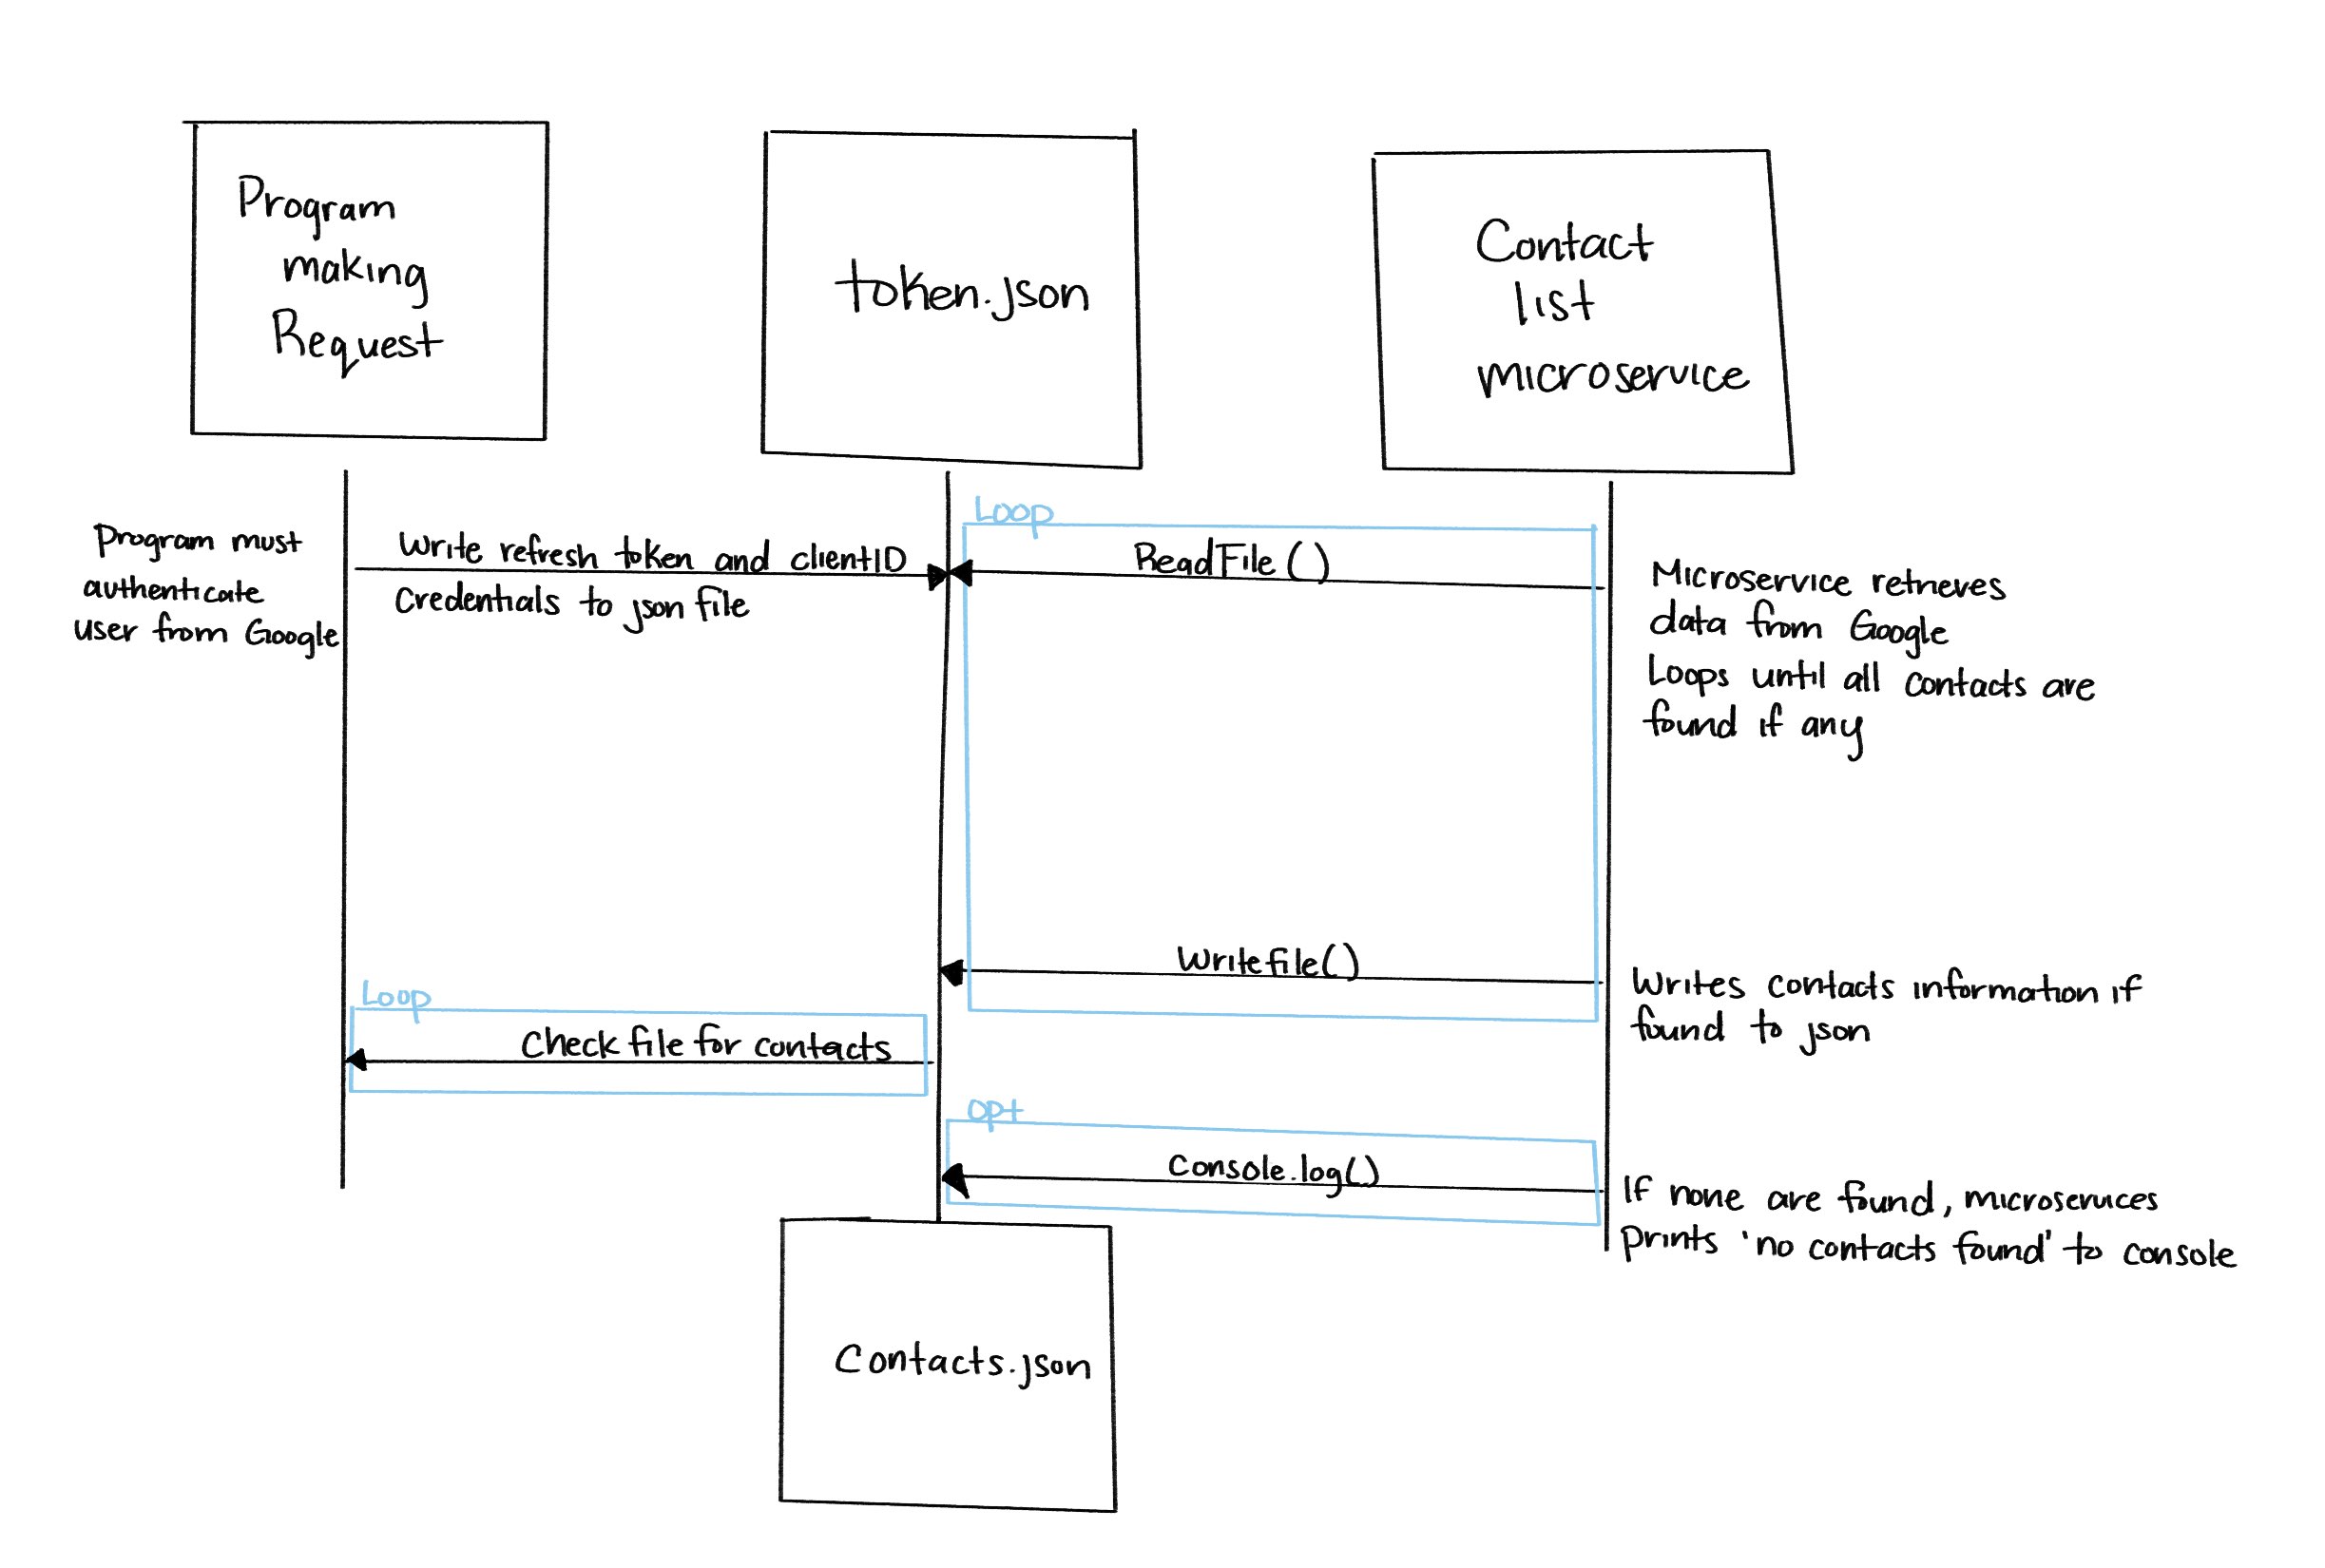 Program
making
Request
token.json
Contact
list
microservice
Program must
authenticate
user from Google
Write refresh token and clientID
credentials to json file
Loop
ReadFile()
Microservice retrieves
data from Google
Loops until all contacts are
found if any
Writefile()
Writes contacts information if
found to json
Loop
Check file for contacts
opt
Console.log()
If none are found, microservices
prints 'no contacts found' to console
Contacts.json